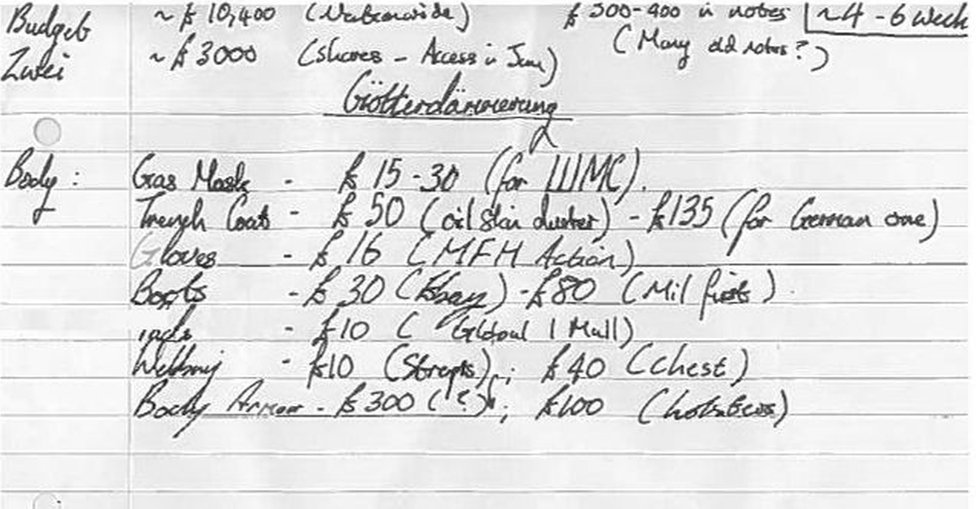 Budget ~ £10,400 (Nationwide) £300-400 in notes ~4-6 week
Zwei ~ £3000 (Shares - Access in June) (Many old notes?)
Götterdämmerung
Body: Gas Mask - £15-30 (for ).
Trench Coat - £50 (oil skin duster) - £135 (for German one)
Gloves - £16 (MFH Action)
Boots - £30 (Ebay) - £80 (Mil )
- £10 ( Mall)
Webbing - £10 (Straps); £40 (Chest)
Body Armour - £300 (?); £100